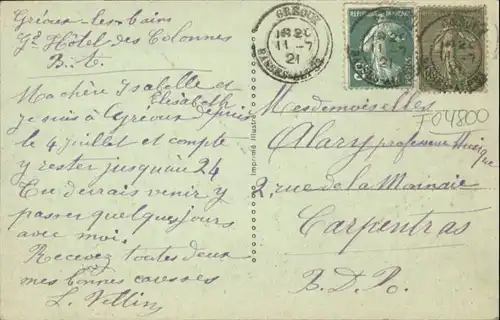 Gréoux-les-bains
Gd Hôtel des Colonnes
B. A.
Ma chère Isabelle et
Elisabeth
je suis à Gréoux depuis
le 4 juillet et compte
y rester jusqu'au 24
Tu devrais venir y
passer quelques jours
avec moi.
Recevez toutes deux
mes bonnes caresses
Imprimé illustré
GREOUX
18 20
11 - 7
21
BASSES-ALPES
Mesdemoiselles
Alary professeur Musique
2, rue de la Monnaie
Carpentras
B.D.R.
F04800